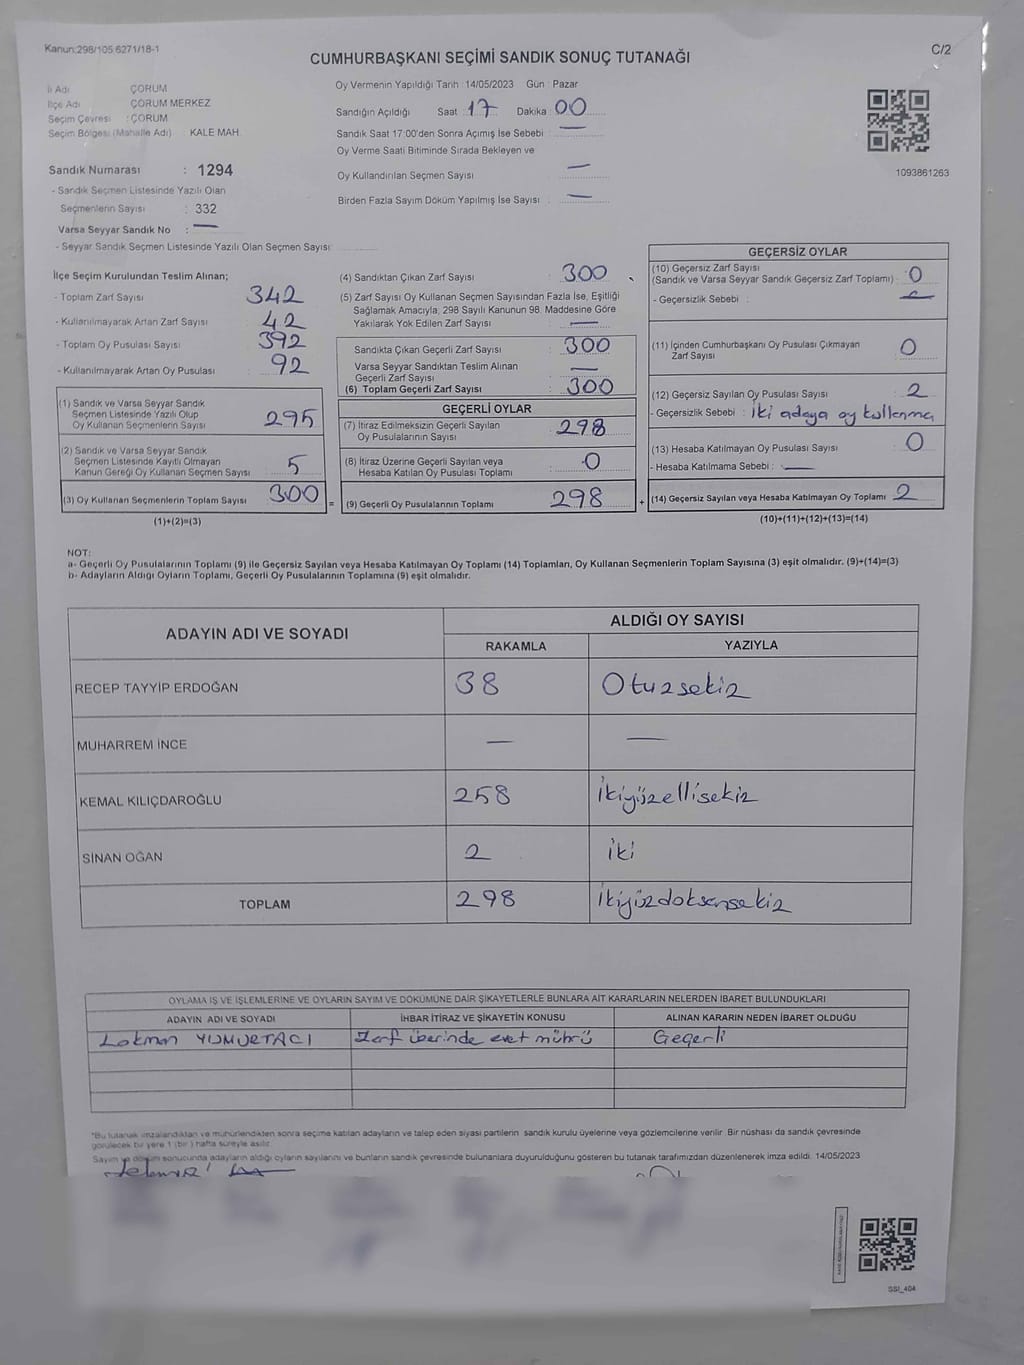 Kanun:298/105 6271/18-1
C/2
CUMHURBAŞKANI SEÇİMİ SANDIK SONUÇ TUTANAĞI
İl Adı : ÇORUM
İlçe Adı : ÇORUM MERKEZ
Seçim Çevresi : ÇORUM
Seçim Bölgesi (Mahalle Adı) : KALE MAH.
Sandık Numarası : 1294
- Sandık Seçmen Listesinde Yazılı Olan
Seçmenlerin Sayısı : 332
Varsa Seyyar Sandık No : —
- Seyyar Sandık Seçmen Listesinde Yazılı Olan Seçmen Sayısı:
Oy Vermenin Yapıldığı Tarih 14/05/2023 Gün : Pazar
Sandığın Açıldığı Saat : 17 Dakika : 00
Sandık Saat 17:00'den Sonra Açımış İse Sebebi : —
Oy Verme Saati Bitiminde Sırada Bekleyen ve
Oy Kullandırılan Seçmen Sayısı : —
Birden Fazla Sayım Döküm Yapılmış İse Sayısı : —
1093861263
İlçe Seçim Kurulundan Teslim Alınan;
- Toplam Zarf Sayısı : 342
- Kullanılmayarak Artan Zarf Sayısı : 42
- Toplam Oy Pusulası Sayısı : 392
- Kullanılmayarak Artan Oy Pusulası : 92
(1) Sandık ve Varsa Seyyar Sandık
Seçmen Listesinde Yazılı Olup
Oy Kullanan Seçmenlerin Sayısı : 295
(2) Sandık ve Varsa Seyyar Sandık
Seçmen Listesinde Kayıtlı Olmayan
Kanun Gereği Oy Kullanan Seçmen Sayısı : 5
(3) Oy Kullanan Seçmenlerin Toplam Sayısı : 300
(1)+(2)=(3)
(4) Sandıktan Çıkan Zarf Sayısı : 300
(5) Zarf Sayısı Oy Kullanan Seçmen Sayısından Fazla İse, Eşitliği
Sağlamak Amacıyla, 298 Sayılı Kanunun 98. Maddesine Göre
Yakılarak Yok Edilen Zarf Sayısı : —
Sandıkta Çıkan Geçerli Zarf Sayısı : 300
Varsa Seyyar Sandıktan Teslim Alınan
Geçerli Zarf Sayısı : —
(6) Toplam Geçerli Zarf Sayısı : 300
GEÇERLİ OYLAR
(7) İtiraz Edilmeksizin Geçerli Sayılan
Oy Pusulalarının Sayısı : 298
(8) İtiraz Üzerine Geçerli Sayılan veya
Hesaba Katılan Oy Pusulası Toplamı : 0
= (9) Geçerli Oy Pusulalarının Toplamı : 298 +
GEÇERSİZ OYLAR
(10) Geçersiz Zarf Sayısı
(Sandık ve Varsa Seyyar Sandık Geçersiz Zarf Toplamı) : 0
- Geçersizlik Sebebi : —
(11) İçinden Cumhurbaşkanı Oy Pusulası Çıkmayan
Zarf Sayısı : 0
(12) Geçersiz Sayılan Oy Pusulası Sayısı : 2
- Geçersizlik Sebebi : İki adaya oy kullanma
(13) Hesaba Katılmayan Oy Pusulası Sayısı : 0
- Hesaba Katılmama Sebebi : —
(14) Geçersiz Sayılan veya Hesaba Katılmayan Oy Toplamı : 2
(10)+(11)+(12)+(13)=(14)
NOT:
a- Geçerli Oy Pusulalarının Toplamı (9) ile Geçersiz Sayılan veya Hesaba Katılmayan Oy Toplamı (14) Toplamları, Oy Kullanan Seçmenlerin Toplam Sayısına (3) eşit olmalıdır. (9)+(14)=(3)
b- Adayların Aldığı Oyların Toplamı, Geçerli Oy Pusulalarının Toplamına (9) eşit olmalıdır.
ADAYIN ADI VE SOYADI
ALDIĞI OY SAYISI
RAKAMLA YAZIYLA
RECEP TAYYİP ERDOĞAN 38 Otuzsekiz
MUHARREM İNCE — —
KEMAL KILIÇDAROĞLU 258 İkiyüzellisekiz
SİNAN OĞAN 2 İki
TOPLAM 298 İkiyüzdoksensekiz
OYLAMA İŞ VE İŞLEMLERİNE VE OYLARIN SAYIM VE DÖKÜMÜNE DAİR ŞİKAYETLERLE BUNLARA AİT KARARLARIN NELERDEN İBARET BULUNDUKLARI
ADAYIN ADI VE SOYADI İHBAR İTİRAZ VE ŞİKAYETİN KONUSU ALINAN KARARIN NEDEN İBARET OLDUĞU
Lokman YUMURTACI Zarf üzerinde evet mührü Geçerli
*Bu tutanak imzalandıktan ve mühürlendikten sonra seçime katılan adayların ve talep eden siyasi partilerin sandık kurulu üyelerine veya gözlemcilerine verilir. Bir nüshası da sandık çevresinde
görülecek bir yere 1 (bir ) hafta süreyle asılır.
Sayım ve döküm sonucunda adayların aldığı oyların sayılarını ve bunların sandık çevresinde bulunanlara duyurulduğunu gösteren bu tutanak tarafımızdan düzenlenerek imza edildi. 14/05/2023
SSI_404